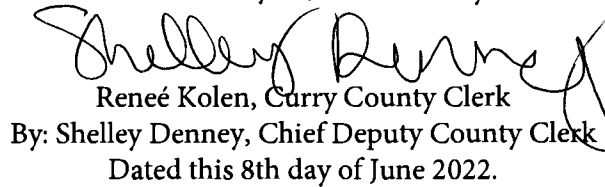 Shelley Denney
Reneé Kolen, Curry County Clerk
By: Shelley Denney, Chief Deputy County Clerk
Dated this 8th day of June 2022.